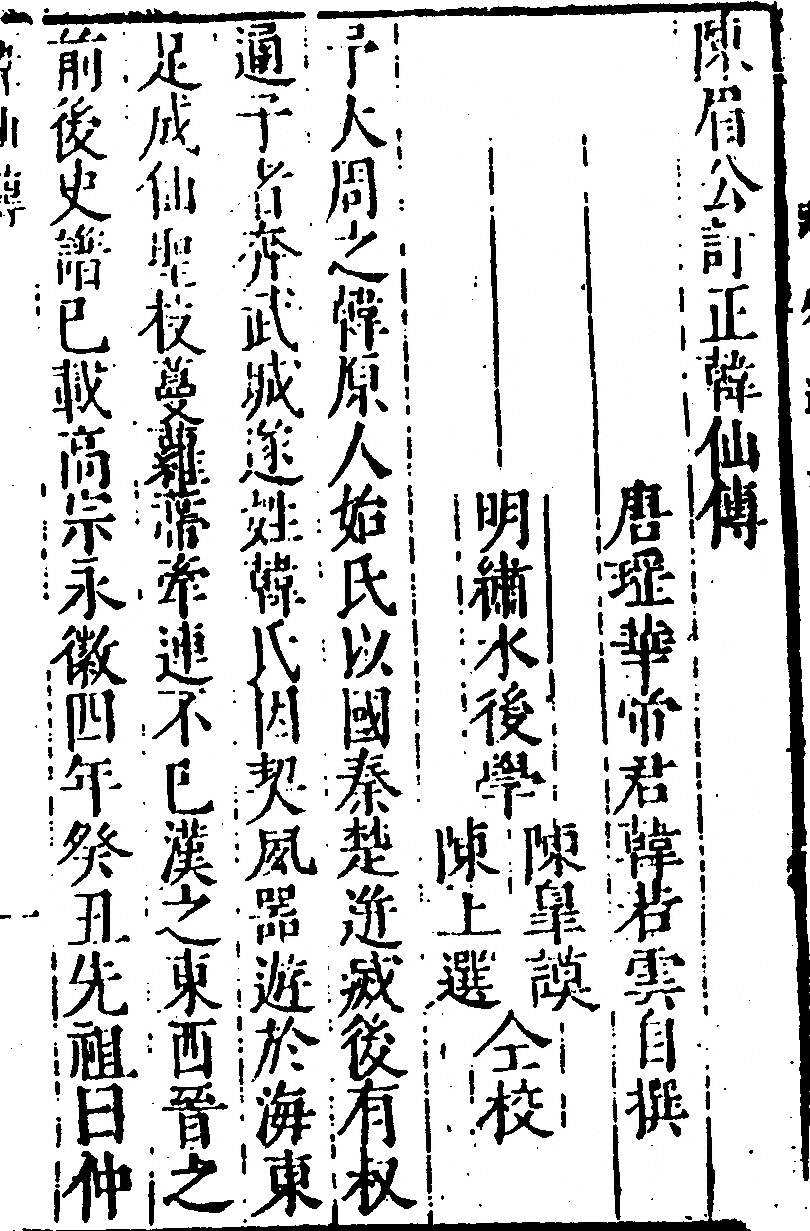 陳眉公訂正韓仙傳
唐瑶華帝君韓若雲自撰
明繡水後學
陳皇謨
陳上選
仝校
予大周之韓原人始氏以國秦楚遊滅後有叔
通子者奔武臧遂姓韓氏因契風器遊於海東
足成仙聖枝蔓蘿蔕牽連不已漢之東西晉之
前後史譜已載高宗永徽四年癸丑先祖曰仲